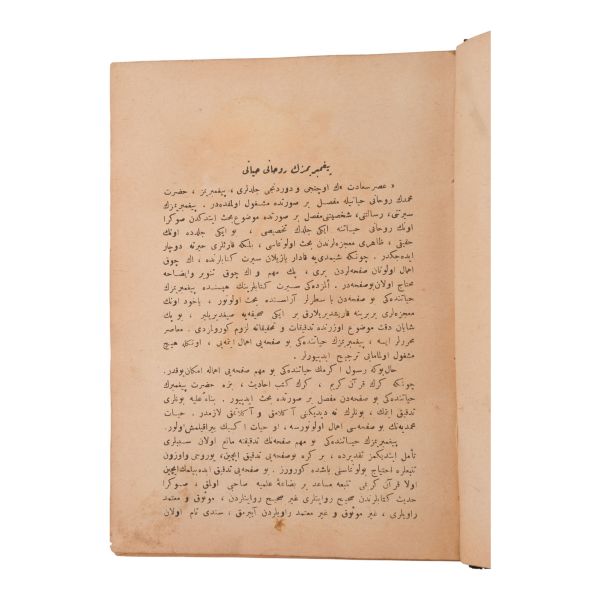 پیغمبریمزك روحانی حیاتی
« عصر سعادت » ك اوچنجی و دوردنجی جلدلری ، پیغمبریمز ، حضرت
محمدك روحانی حیاتیله مفصل بر صورتده مشغول اولمقده‌در . پیغمبریمزك
سیرتنی، رسالتنی، شخصیتنی مفصل بر صورتده موضوع بحث ایتدكدن صوكرا
اونك روحانی حیاتنه ایكی جلدك تخصیصی ، بو ایكی جلدده اونك
حقیقی ، ظاهری معجزه‌لرندن بحث اولونماسی ، بلكه قارئلری حیرته دوچار
ایده‌جكدر . چونكه شیمدی‌یه قادار یازیلان سیرت كتابلرنده ، اك چوق
اهمال اولونان صفحه‌لردن بری ، پك مهم و اك چوق تنویر و ایضاحه
محتاج اولان بو صفحه‌در . ألزده‌كی سیرت كتابلرینك هپسنده پیغمبریمزك
حیاتنده‌كی بو صفحه‌دن یا سطرلر آراسنده بحث اولونور ، یاخود اونك
معجزه‌لری بربرینه قاریشدیریلارق بر ایكی صحیفه‌یه صیقدیریلیر ، بو پك
شایان دقت موضوع اوزرنده تدقیقات و تحقیقاته لزوم كورولمزدی . معاصر
محررلر ایسه ، پیغمبریمزك حیاتنده‌كی بو صفحه‌یی اهمال ایتمه‌یی ، اونكله هیچ
مشغول اولمامایی ترجیح ایدییورلر .
حال بوكه رسول اكرمك حیاتنده‌كی بو مهم صفحه‌یی اهماله امكان یوقدر .
چونكه كرك قرآن كریم ، كرك كتب احادیث ، بزه حضرت پیغمبرك
حیاتنده‌كی بو صفحه‌دن مفصل بر صورتده بحث ایدییور . بناءً علیه بونلری
تدقیق ایتمك ، بونلرك نه دیدیكنی آكلامق و آكلاتمق لازمدر . حیات
محمدیه‌نك بو صفحه‌سی اهمال اولونورسه ، او حیات اكسیك بیراقیلمش اولور.
پیغمبریمزك حیاتنده‌كی بو مهم صفحه‌نك تدقیقنه مانع اولان سببلری
تأمل ایتدیكمز تقدیرده ، بر كره بو صفحه‌یی تدقیق ایچین، یوروجی و اوزون
تتبعلره احتیاج بولونماسنی باشده كورورز . بو صفحه‌یی تدقیق ایده‌بیلمك ایچین
اولا قرآن كریمی تتبعه مساعد بر بضاعهٔ علمیه صاحبی اولمق ، صوكرا
حدیث كتابلرندن صحیح روایتلری غیر صحیح روایتلردن ، موثوق و معتمد
راویلری ، غیر موثوق و غیر معتمد راویلردن آییرمق ، سندی تام اولان